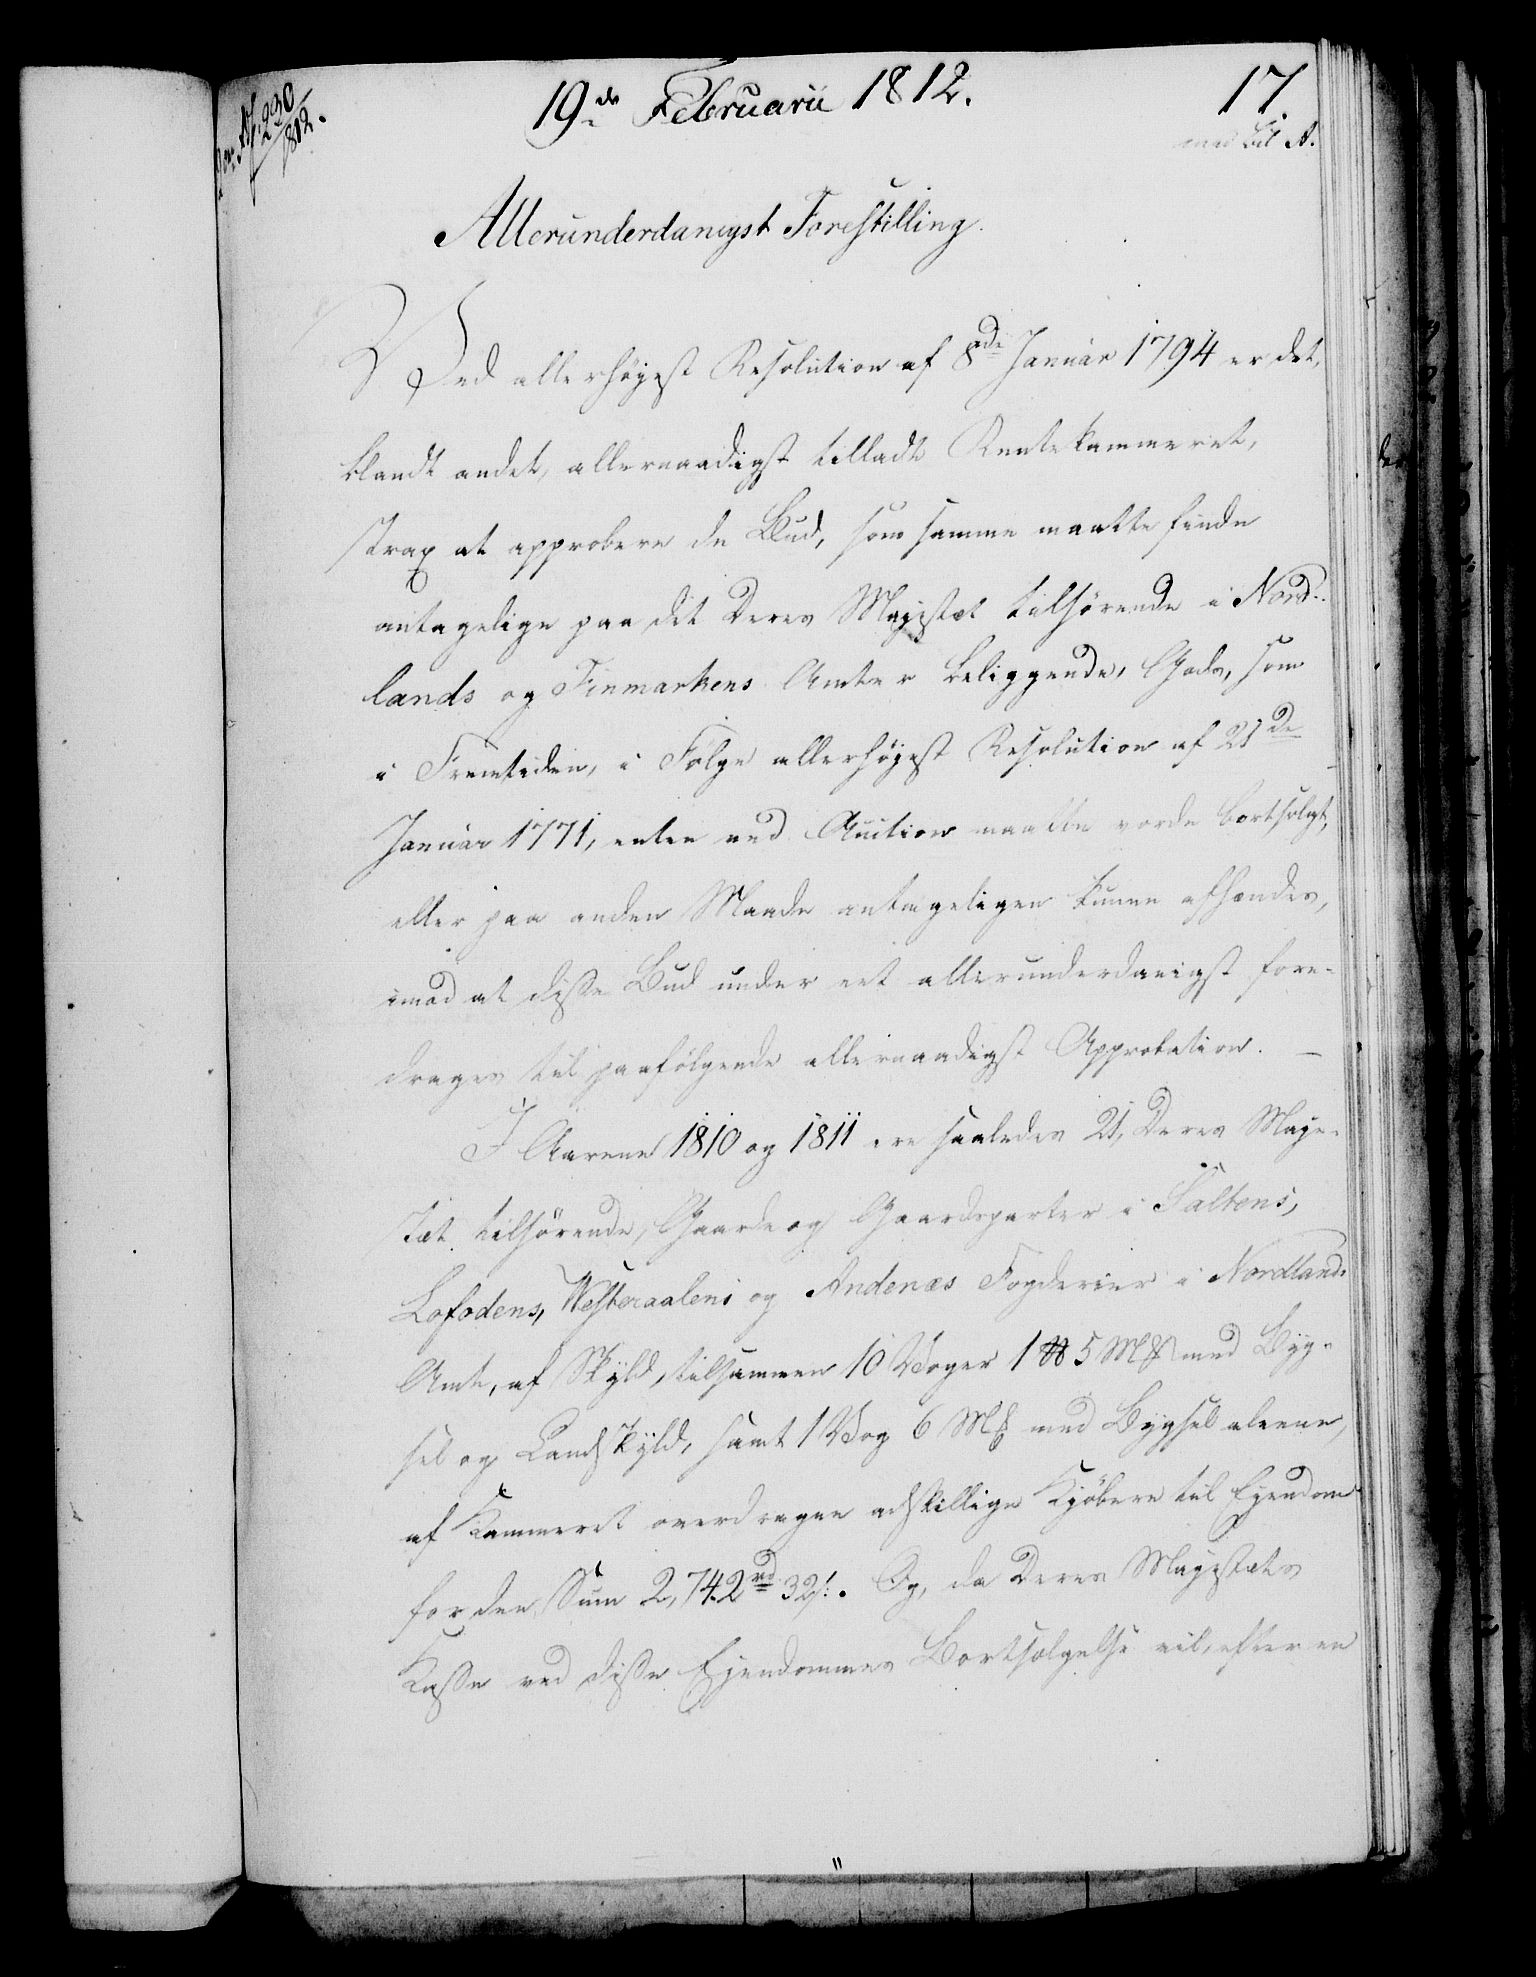 19de Februarii 1812.
17.
Nor. No 230/1812.
med Bil A.
Allerunderdanigst Forestilling.
Ved allerhøyest Resolution af 8de Januar 1794 er det,
blandt andet, allernaadigst tilladt Rentekammeret,
strax at approbere de Bud, som samme maatte finde
antagelige paa det Deres Majestæt tilhørende i Nord-
lands og Finmarkens Amter beliggende Gods, som
i Fremtiden, i Følge allerhøyest Resolution af 21de
Januar 1771, enten ved Auction maatte vorde bortsolgt,
eller paa anden Maade antageligen kunne afhændes,
imod at disse Bud under eet allerunderdanigst fore-
drages til paafølgende allernaadigst Approbation. —
I Aarene 1810 og 1811 ere saaledes 21, Deres Maje-
stæt tilhørende, Gaarde og Gaardsparter i Saltens,
Lofodens, Westeraalens og Andenæs Fogderier i Nordlands
Amt, af Skyld, tilsammen 10 Voger 1 ℔ 5 M℔ med Byg-
sel og Landskyld, samt 1 Vog 6 M℔ med Bygsel alene,
af Kammeret overdragne adskillige Kjøbere til Ejendom
for den Sum 2,742 rd 32 s. Og, da Deres Majestæts
Kasse ved disse Ejendommes Bortsælgelse vil, efter en